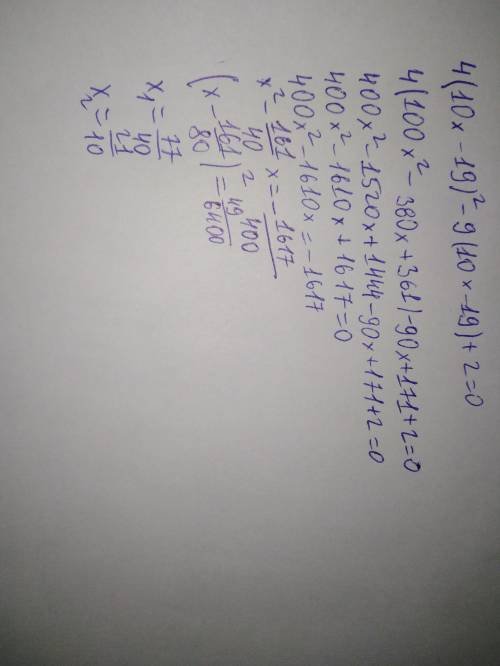 4(10x-19)²-9(10x-19)+2=0
4(100x²-380x+361)-90x+171+2=0
400x²-1520x+1444-90x+171+2=0
400x²-1610x+1617=0
400x²-1610x=-1617
x²-161/40 x=-1617/400
(x-161/80)²=49/6400
x₁=77/40
x₂=21/10